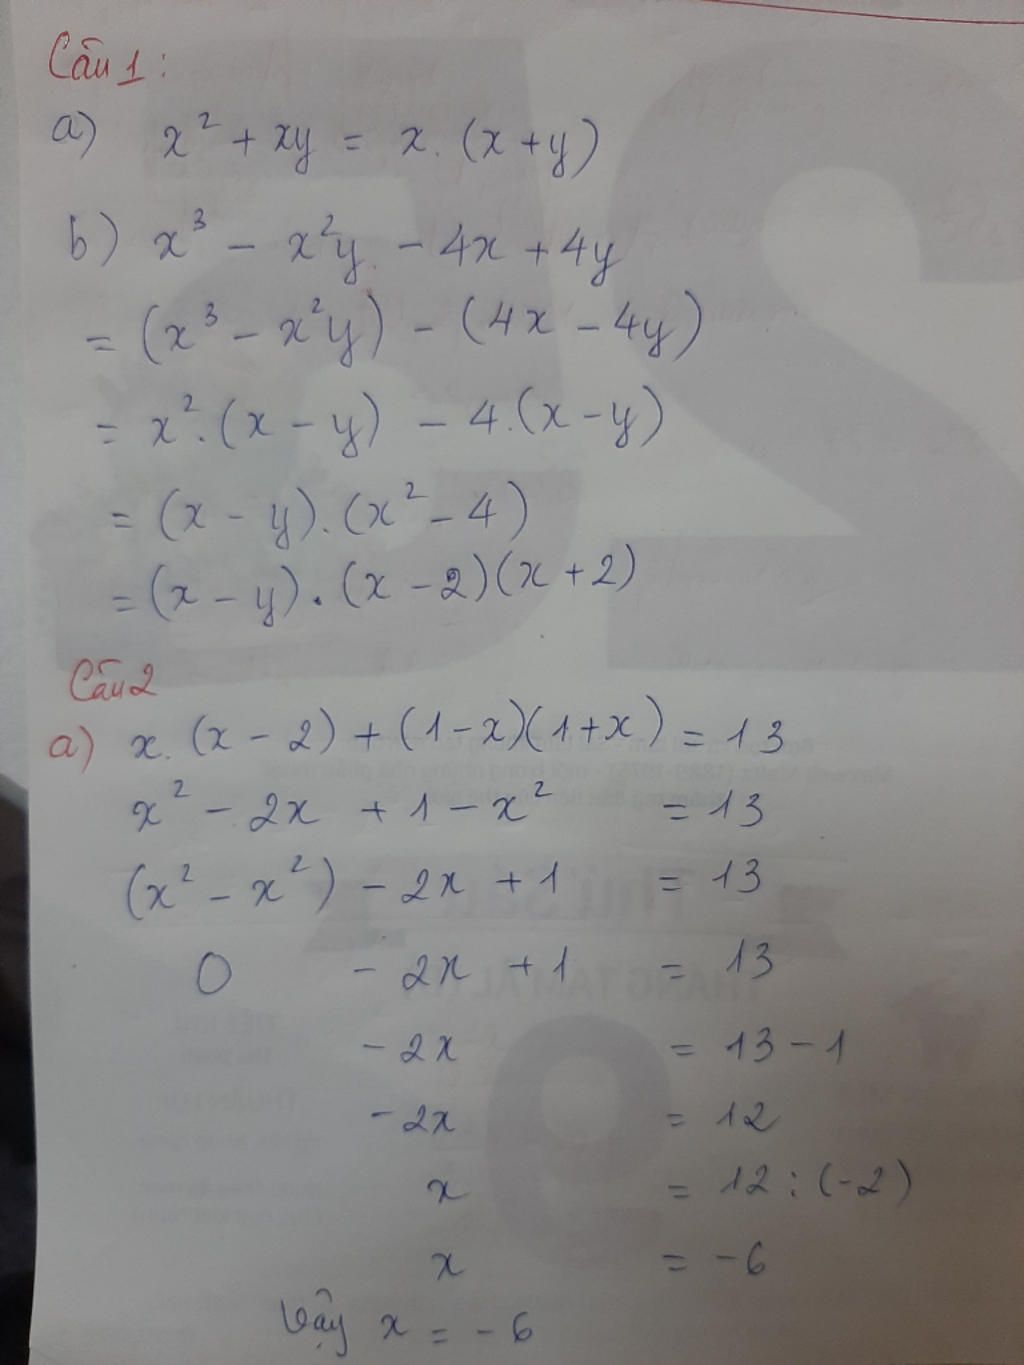 Câu 1:
a) x² + xy = x. (x + y)
b) x³ - x²y - 4x + 4y
= (x³ - x²y) - (4x - 4y)
= x².(x - y) - 4.(x - y)
= (x - y).(x² - 4)
= (x - y).(x - 2)(x + 2)
Câu 2
a) x. (x - 2) + (1 - x)(1 + x) = 13
x² - 2x + 1 - x² = 13
(x² - x²) - 2x + 1 = 13
0 - 2x + 1 = 13
- 2x = 13 - 1
- 2x = 12
x = 12 : (-2)
x = -6
Vậy x = -6
Thứ Sáu
THÁNG TÁM ÂL
9
25